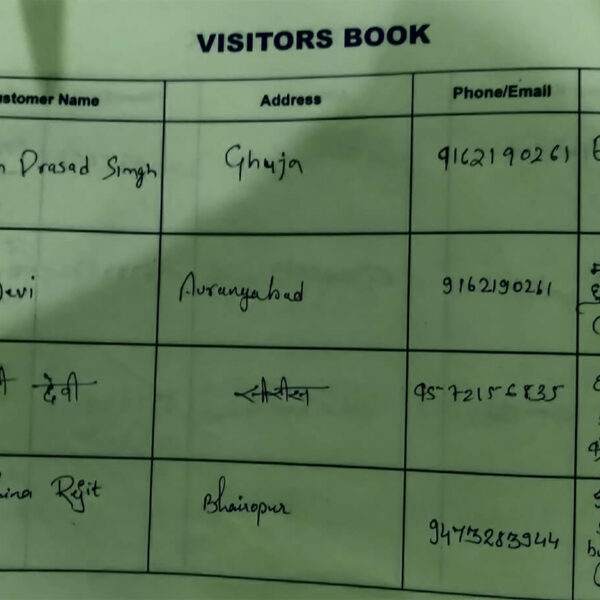 VISITORS BOOK
stomer Name Address Phone/Email
Prasad Singh Ghuja 9162190261
Devi Aurangabad 9162190261
देवी 9572156835
Rejit Bhairopur 9473283944